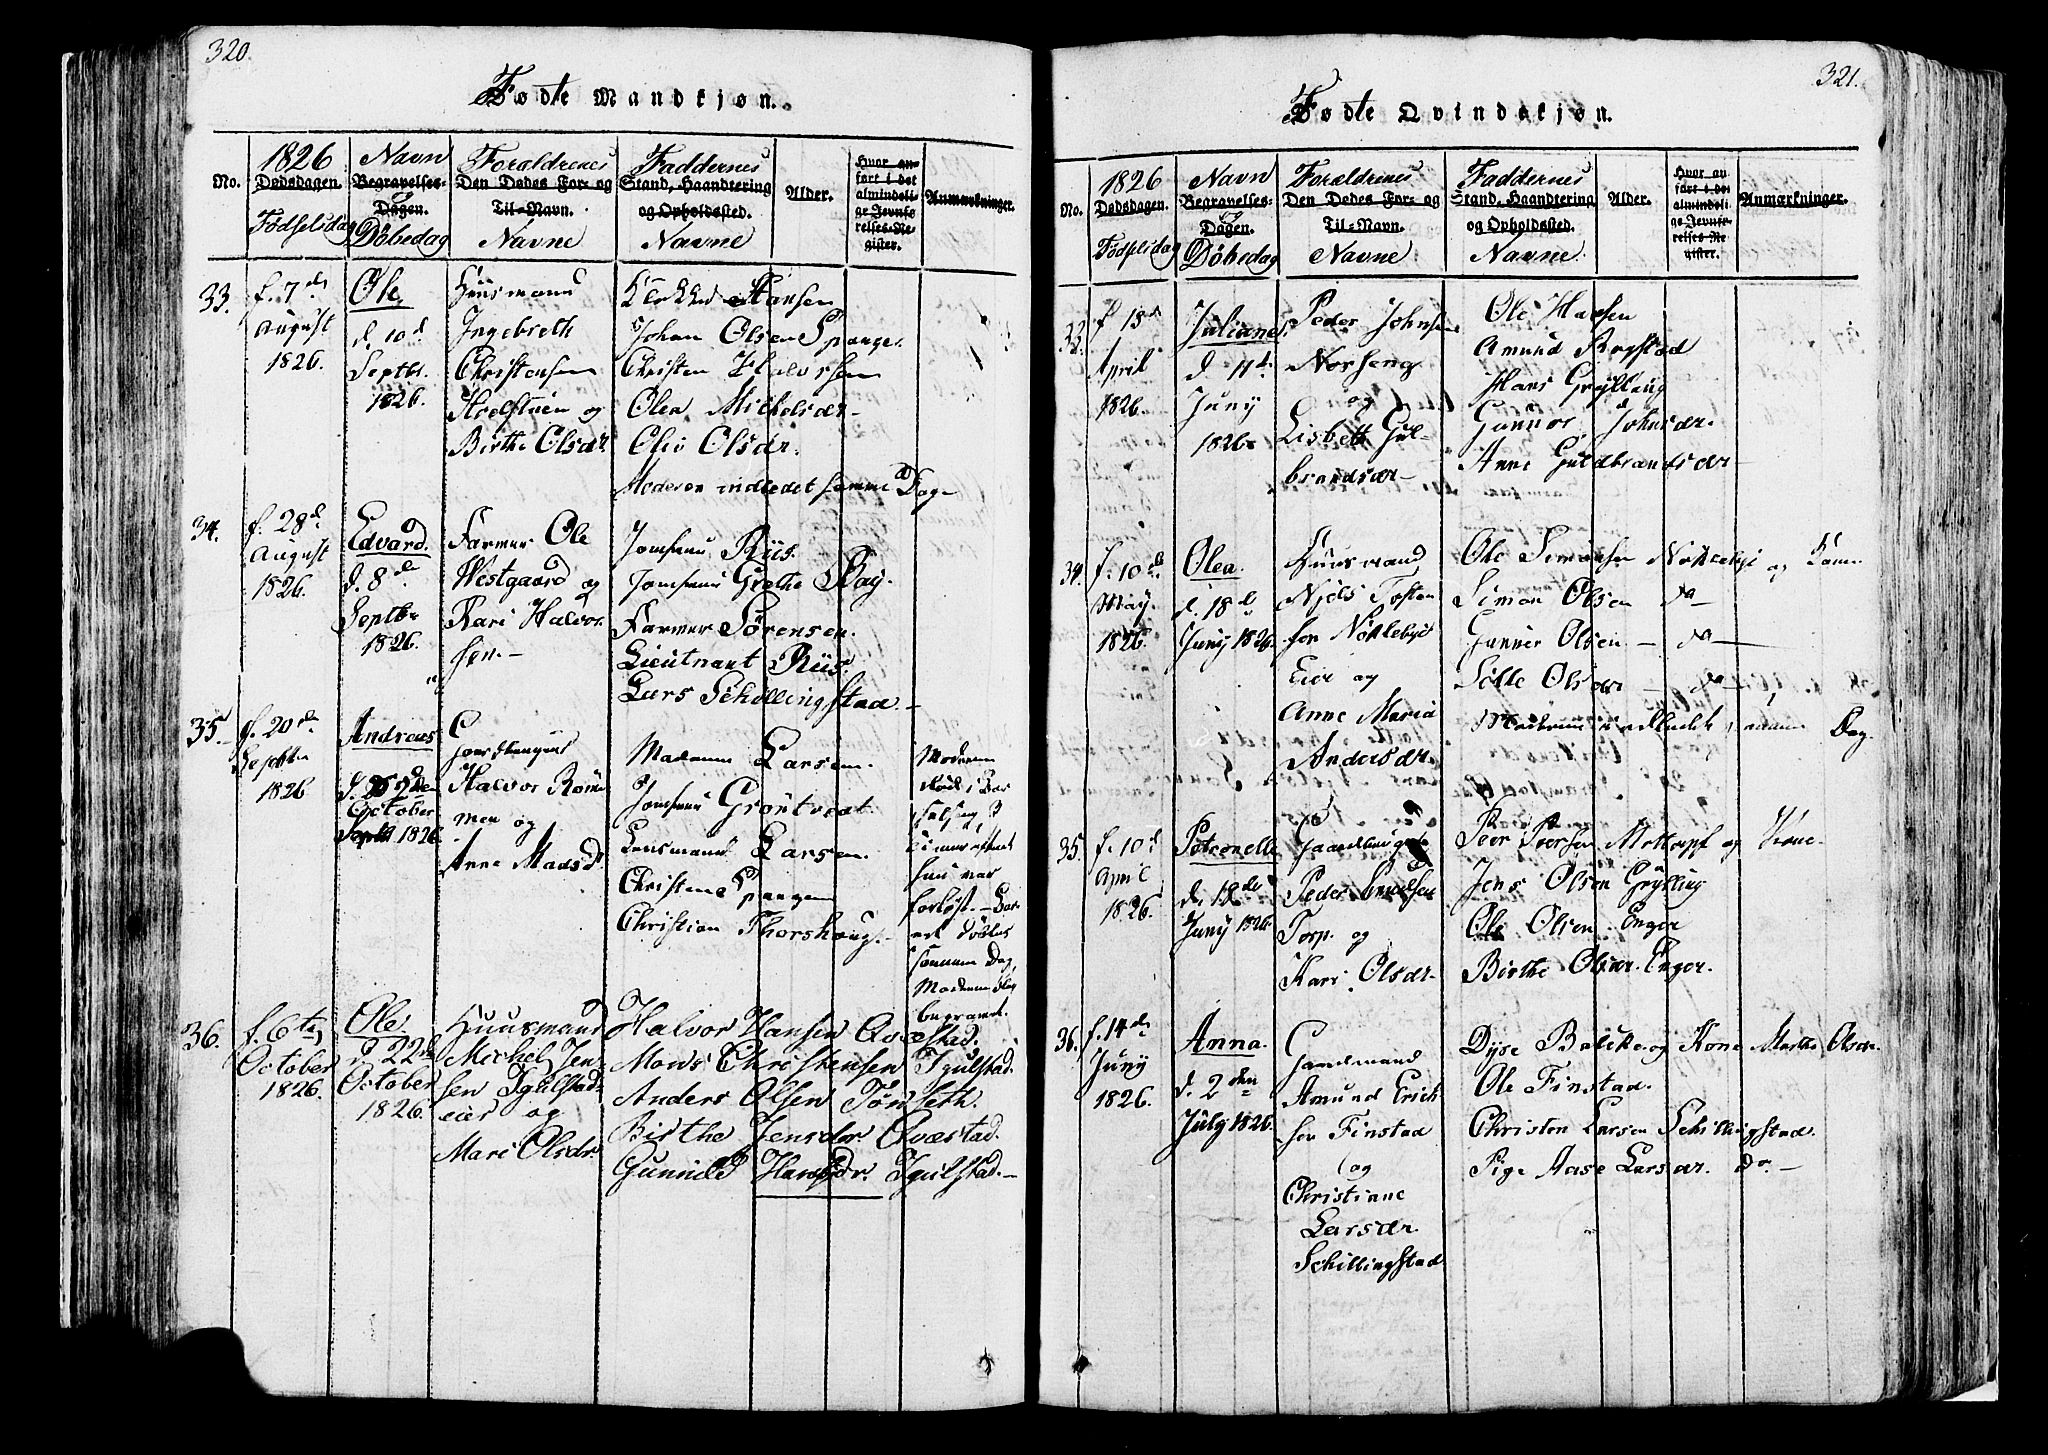 320.
Fødte Mandkjøn.
No.
1826
Dødsdagen.
Födselsdag
Navn
Begravelses-
Dagen.
og
Döbedag
Foraldrenes
Den Dødes For- og
Til-Navn.
Navne
Faddernes
Stand, Haandtering
og Opholdssted.
Navne
Alder.
Hvor an-
ført i det
almindeli-
ge Jevnfø-
relses-Re-
gister.
Anmærkninger.
33.
f. 7de
August
1826.
Ole
d. 10d
Septbr.
1826.
Huusmand
Ingebreth
Christensen
og
Birthe Olsdr.
Klokker Hansen
Johan Olsen Spange.
Christen Halvorsen
Olea Mickelsdr.
Olea Olsdr.
Moderen indledet samme Dag
34.
f. 28d.
August
1826.
Edvard.
d. 8de
Septbr
1826.
Farmer Ole
Westgaard og
Kari Halvor
sen.
Jomfrue Riis.
Jomfrue Grethe Bay.
Farmer Sörensen.
Lieutnant Riis.
Lars Schillingstad.
35.
f. 20de
Septbr
1826
Andreas
October
Septb 1826.
Halvor
men og
Anne Madsd
Madame Larsen.
Jomfrue Gröntvedt
Lensmand Larsen.
Christen Spangen
Christian Thorshaug.
Moderen
död i Bar
selseng 3
Timer efter at
hun var
forløst. Bar
net döbtes
samme Dag
Moderen blev
begravet.
36.
f. 6te
October
1826.
Ole.
d. 22d
October
1826.
Huusmand
Michel Jen
sen Igulstad
eier og
Mari Olsdr.
Halvor Hansen Qvæstad.
Mons Christensen Igulstad.
Anders Olsen Tönseth.
Birthe Jensdr Qvæstad.
Gunnild Hansdr. Igulstad.
321.
Fødte Qvindekjøn.
No.
1826
Dødsdagen.
Födselsdag
Navn
Begravelses-
Dagen.
og
Döbedag
Foraldrenes
Den Dødes For- og
Til-Navn.
Navne
Faddernes
Stand, Haandtering
og Opholdssted.
Navne
Alder.
Hvor an-
ført i det
almindeli-
ge Jevnfø-
relses-Re-
gister.
Anmærkninger.
33.
f 15d
April
1826.
Juliane
d. 11d.
Juny
1826
Peder Johnsen
Norseng
og
Lisbeth Gul-
brandsdr
Ole Hansen
Amund Rogstad
Hans Grylling
Gunnor Johnsdr.
Anne Guldbrandsdr
34.
f. 10de
May.
1826.
Olea.
d. 18d
Juny 1826.
Huusmand
Njels Tosten
sen Nöklebye
Eier og
Anne Maria
Andersdr.
Ole Simensen Nöklebye og Kone
Simon Olsen do
Gunner Olsen do
Sölle Olsdr do
Moderen indledet samme Dag.
35.
f. 10d
April
1826.
Petronelle
d. 18de
Juny 1826.
Gaardbruger
Peder
Torp og
Kari Olsdr
Peer Peersen og Kone.
Jens Olsen Grylling
Ole Olsen Enger
Birthe Olsdr. Enger.
36.
f. 14de
Juny
1826.
Anna.
d. 2den
July 1826.
Gaardmand
Amund Erich
sen Finstad
og
Christiane
Larsdr
Schillingstad
Kone Marthe Olsdr.
Ole Finstad.
Christen Larsen Schillingstad.
Pige Aase Larsdr. do.